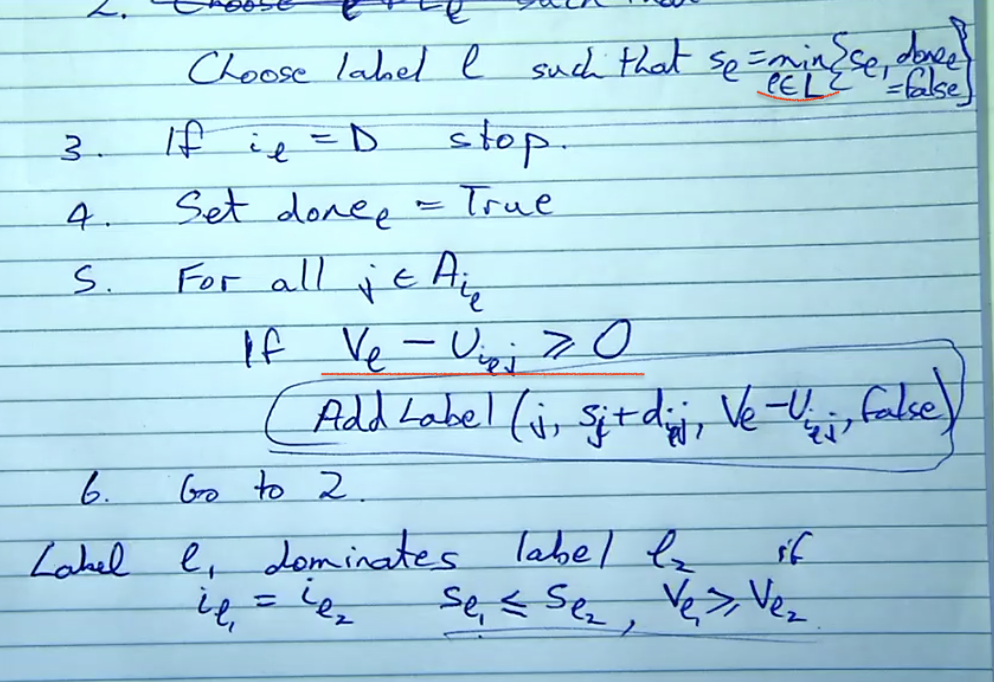 2. Choose l ∈ L_l such that
Choose label l such that s_l = min_{l∈L} {s_l, done_l = false}
3. If i_l = D stop.
4. Set done_l = True
5. For all j ∈ A_{i_l}
If V_l - U_{i_l j} ⩾ 0
Add Label (j, s_j + d_{i_l j}, V_l - U_{i_l j}, false)
6. Go to 2.
Label l_1 dominates label l_2 if
i_{l_1} = i_{l_2} s_{l_1} ≤ s_{l_2}, V_{l_1} ⩾ V_{l_2}